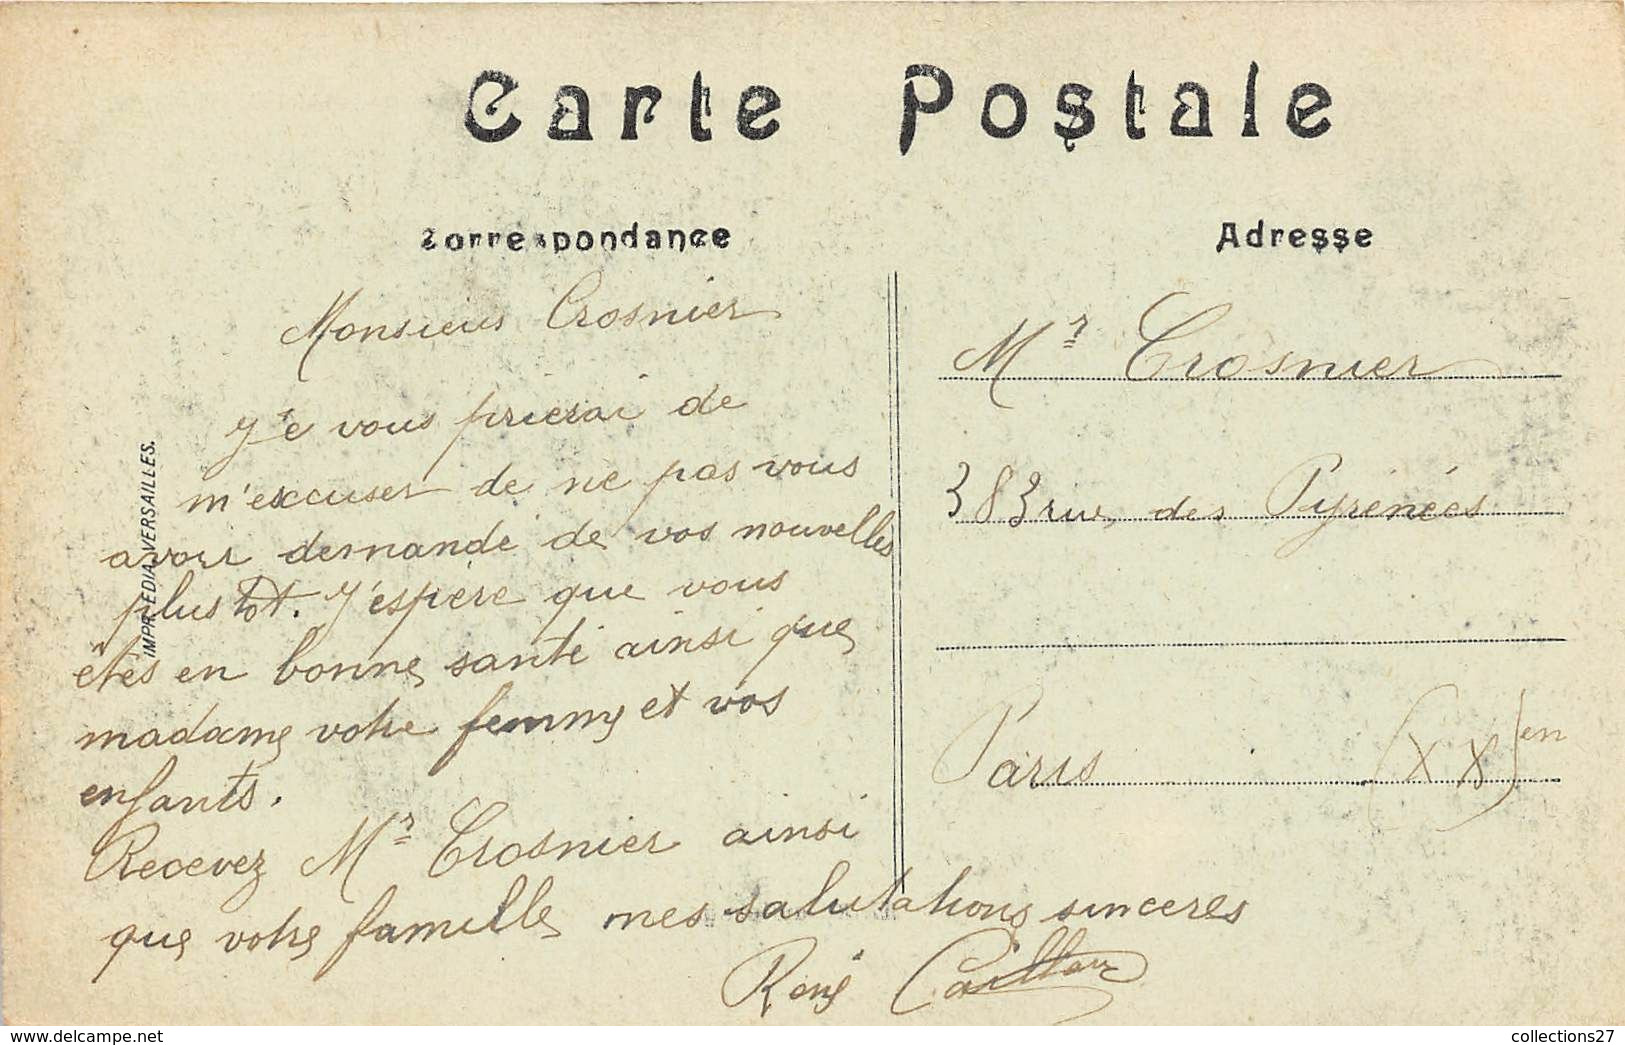 Carte Postale
Correspondance
Adresse
Monsieur Crosnier
Je vous prierai de
m'excuser de ne pas vous
avoir demandé de vos nouvelles
plus tôt. J'espère que vous
êtes en bonne santé ainsi que
madame votre femme et vos
enfants.
Recevez Mr Crosnier ainsi
que votre famille mes salutations sincères
René
Mr Crosnier
383 rue des Pyrénées
Paris (XX)en
IMPR. EDIA. VERSAILLES.
www.delcampe.net
collections27